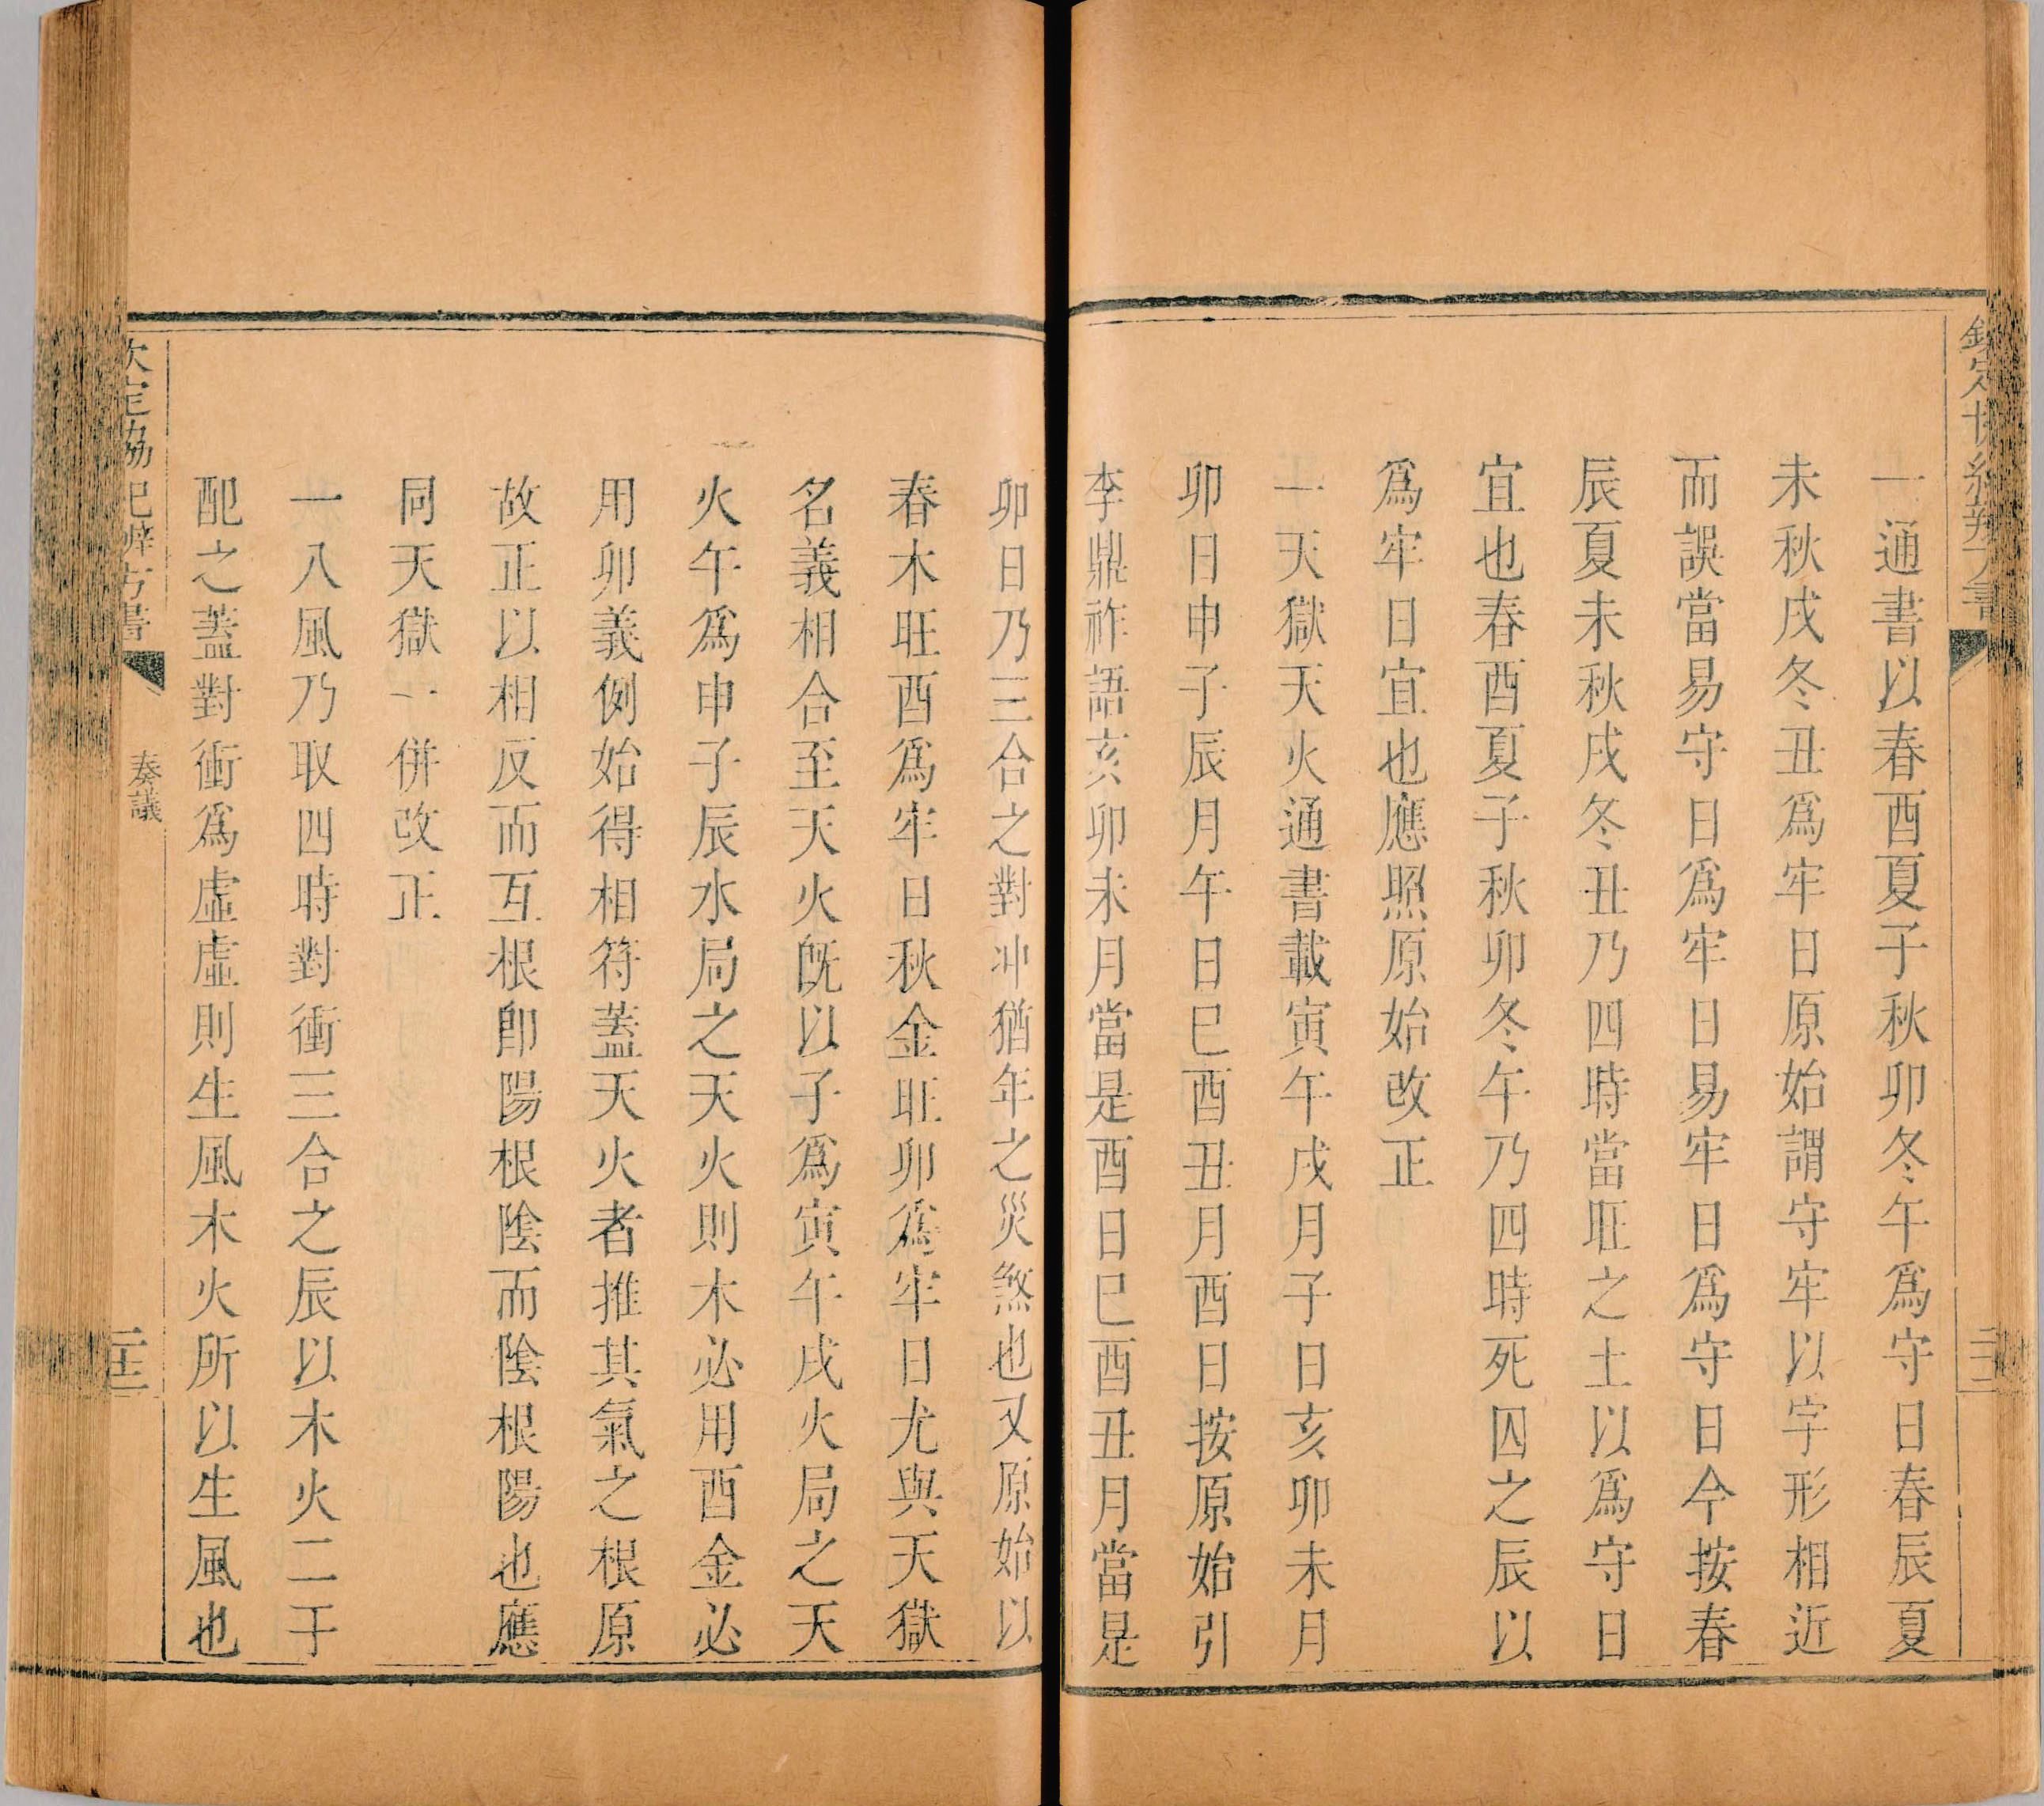 一通書以春酉夏子秋卯冬午爲守日春辰夏
未秋戌冬丑爲牢日原始謂守牢以字形相近
而誤當易守日爲牢日易牢日爲守日今按春
辰夏未秋戌冬丑乃四時當旺之土以爲守日
宜也春酉夏子秋卯冬午乃四時死囚之辰以
爲牢日宜也應照原始改正
一天獄天火通書載寅午戌月子日亥卯未月
卯日申子辰月午日巳酉丑月酉日按原始引
李鼎祚語亥卯未月當是酉日巳酉丑月當是
卯日乃三合之對冲猶年之災煞也又原始以
春木旺酉爲牢日秋金旺卯爲牢日尤與天獄
名義相合至天火旣以子爲寅午戌火局之天
火午爲申子辰水局之天火則木必用酉金必
用卯義例始得相符蓋天火者推其氣之根原
故正以相反而互根卽陽根陰而陰根陽也應
同天獄一併改正
一八風乃取四時對衝三合之辰以木火二干
配之蓋對衝爲虛虛則生風木火所以生風也
欽定協紀辨方書
奏議